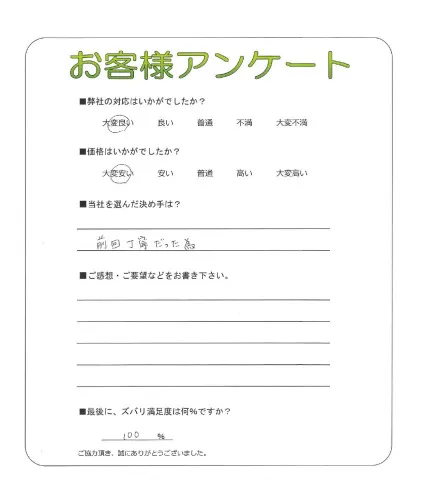 お客様アンケート
■弊社の対応はいかがでしたか?
大変良い 良い 普通 不満 大変不満
■価格はいかがでしたか?
大変安い 安い 普通 高い 大変高い
■当社を選んだ決め手は?
前回丁寧だった為
■ご感想・ご要望などをお書き下さい。
■最後に、ズバリ満足度は何%ですか?
100 %
ご協力頂き、誠にありがとうございました。